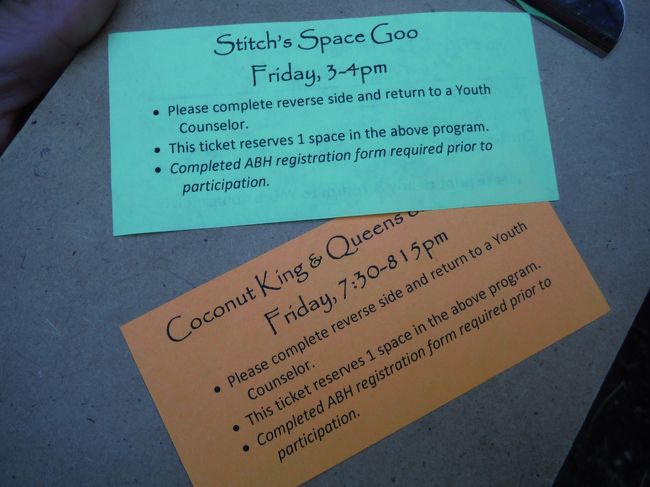 Stitch's Space Goo
Friday, 3-4pm
• Please complete reverse side and return to a Youth
Counselor.
• This ticket reserves 1 space in the above program.
• Completed ABH registration form required prior to
participation.
Coconut King & Queens
Friday, 7:30-815pm
• Please complete reverse side and return to a Youth
Counselor.
• This ticket reserves 1 space in the above program.
• Completed ABH registration form required prior to
participation.